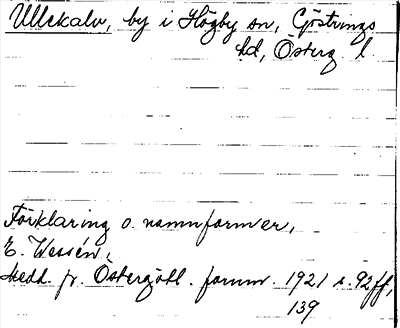 Ullekalv, by i Högby sn, Göstrings
hd, Österg. l.
Förklaring o. namnformer,
E. Wessén,
Medd. fr. Östergötl. fornm. 1921 s. 92 ff,
139